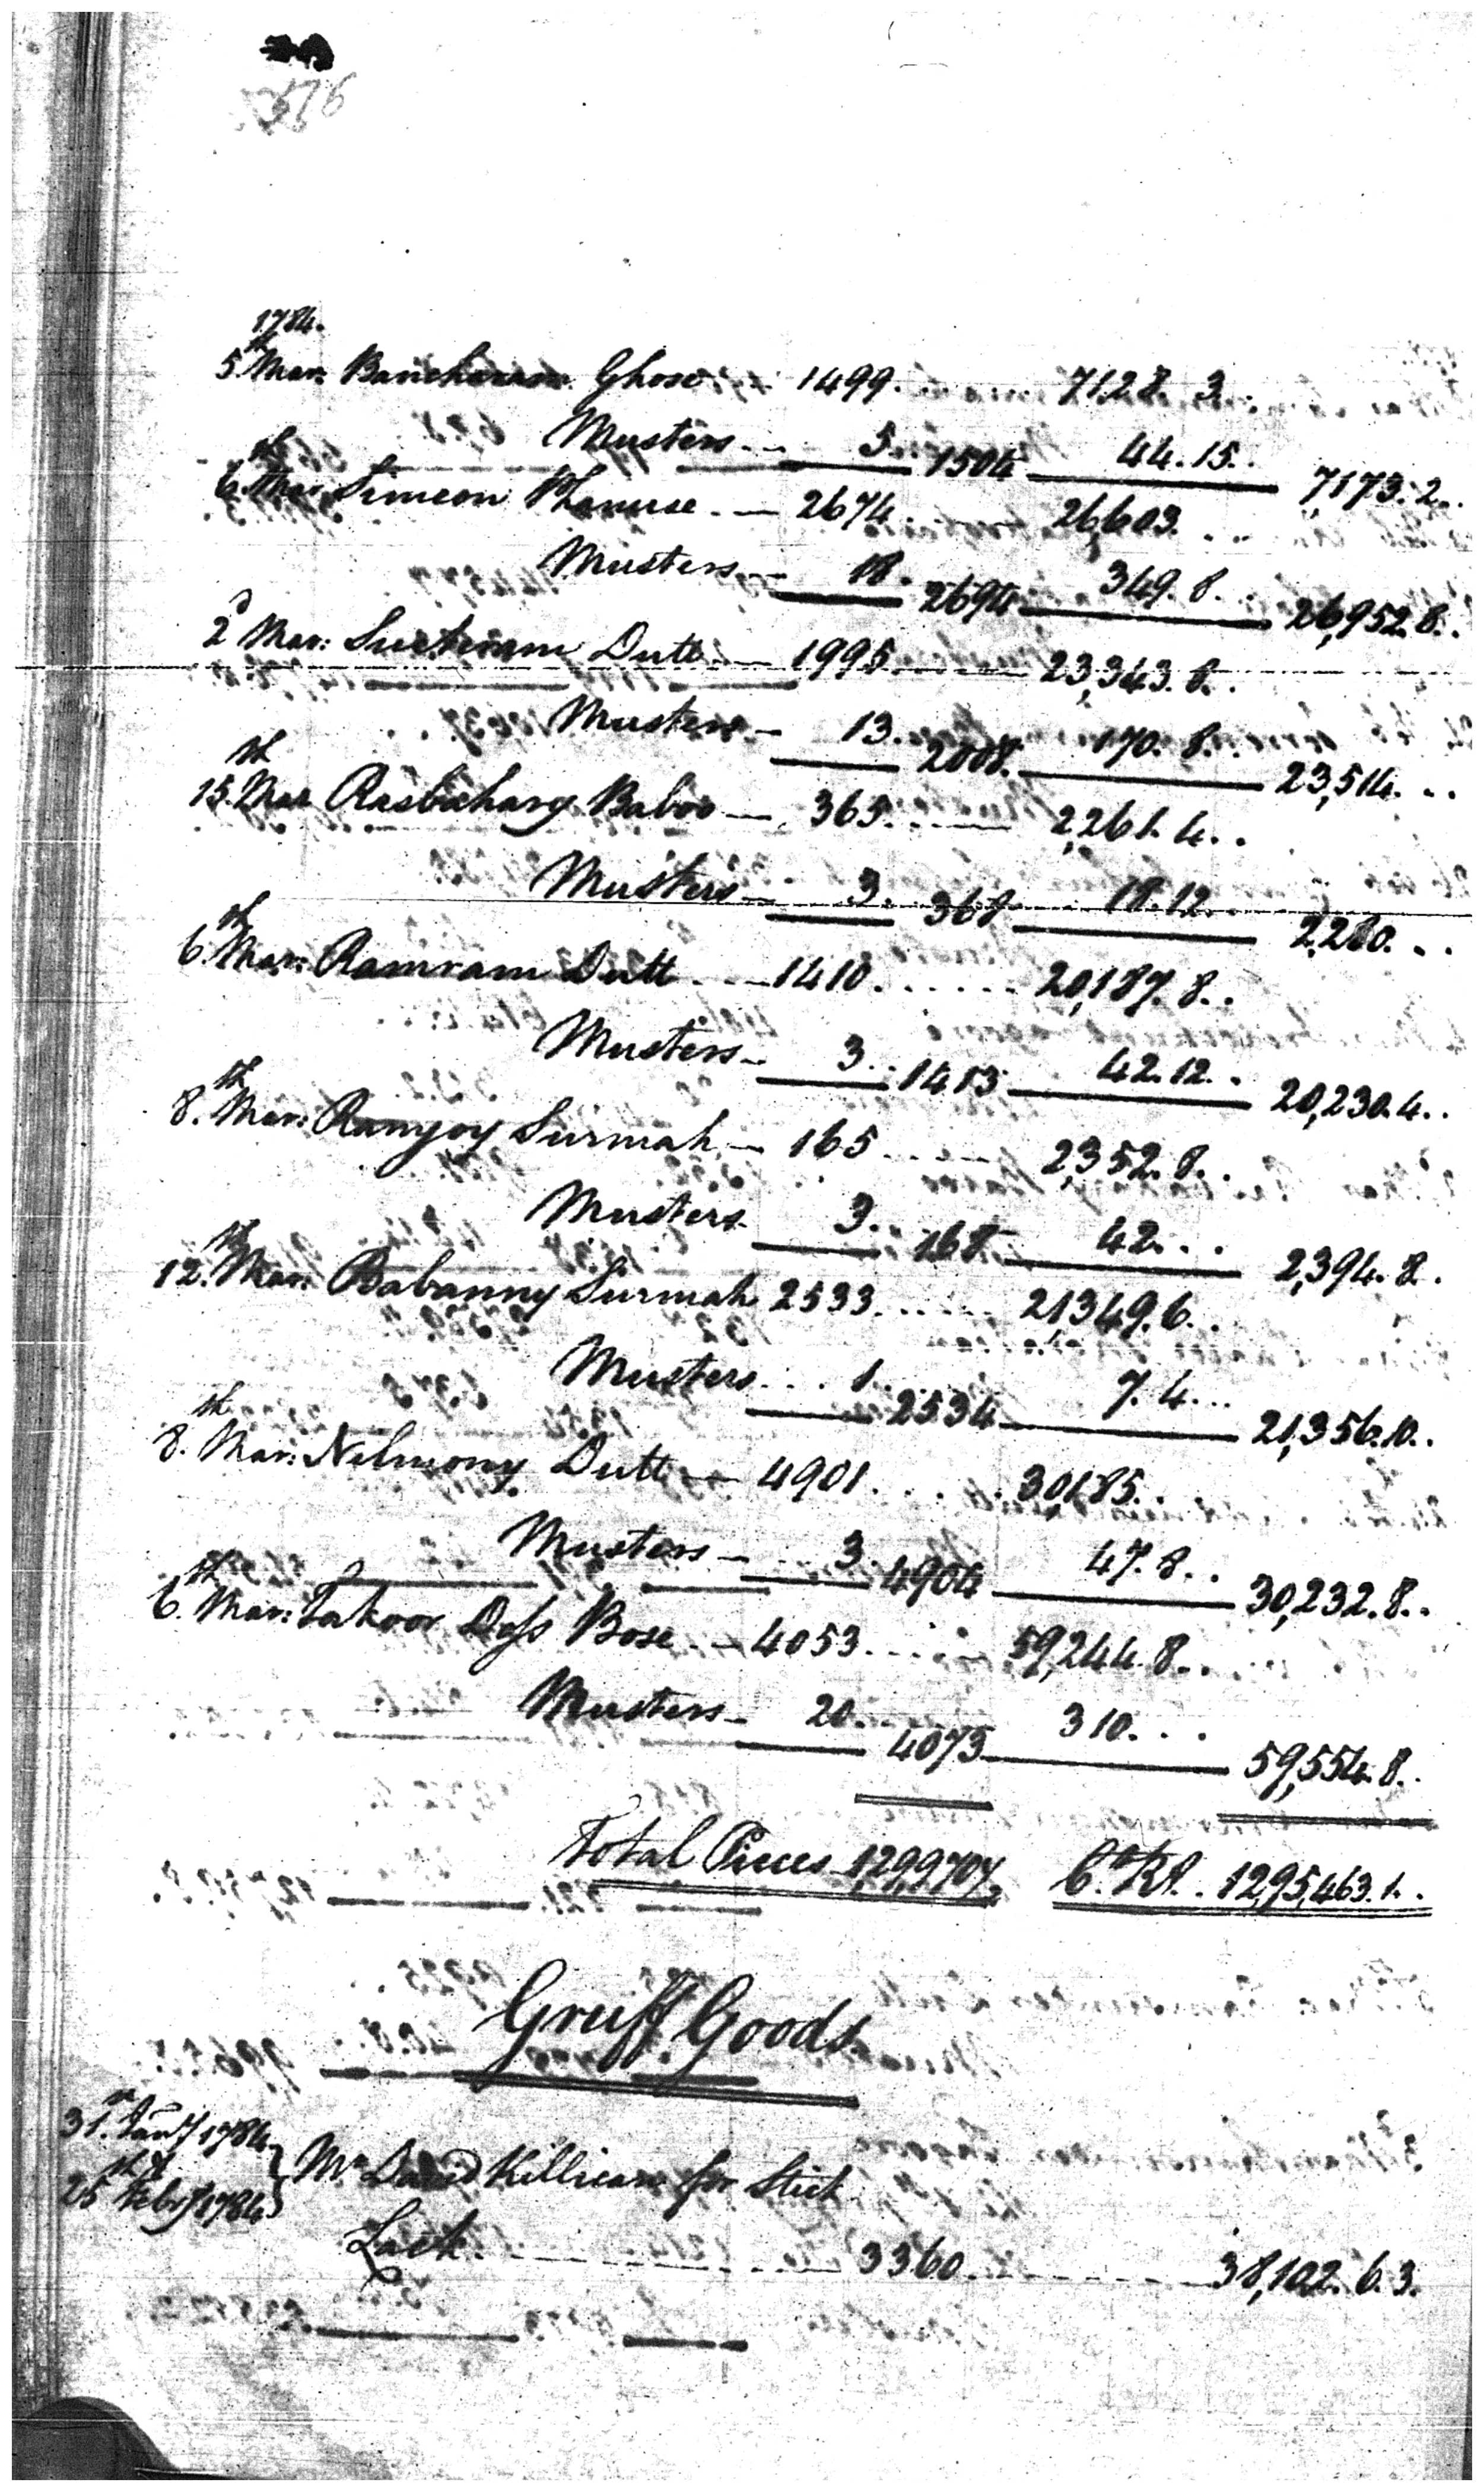 1784.
5th Mar: Bancharam Ghose 1499. 7128. 3.
Musters 5. 1504 44. 15. 7,173. 2.
6th Mar: Simeon 2674 26,603.
Musters 18. 2694 349. 8. 26,952. 8.
2d Mar: Sucteram Dutt 1995 23,343. 8.
Musters 13. 2008. 170. 8. 23,514.
15th Mar Rasbehary Baboo 365 2,261. 4.
Musters 3. 368 18. 12. 2,280.
6th Mar: Ramram Dutt 1410. 20,187. 8.
Musters 3. 1413 42. 12. 20,230. 4.
8th Mar: Ramjoy Surmah 165 2,352. 8.
Musters 3. 168 42. 2,394. 8.
12th Mar: Babanny Surmah 2533 21,349. 6.
Musters 1 2534 7. 4. 21,356. 10.
8th Mar: Nilmony Dutt 4901. 30,185.
Musters 3. 4904 47. 8. 30,232. 8.
6th Mar: Takoor Doss Bose 4053 59,244. 8.
Musters 20. 4073 310. 59,554. 8.
Total Pieces 1,29,970 Ct. Rs. 12,95,463. 1.
Gruff Goods.
31st Jany 1784
25th Febry 1784 Mr David Killican for Stick
Lack 3360 38,102. 6. 3.